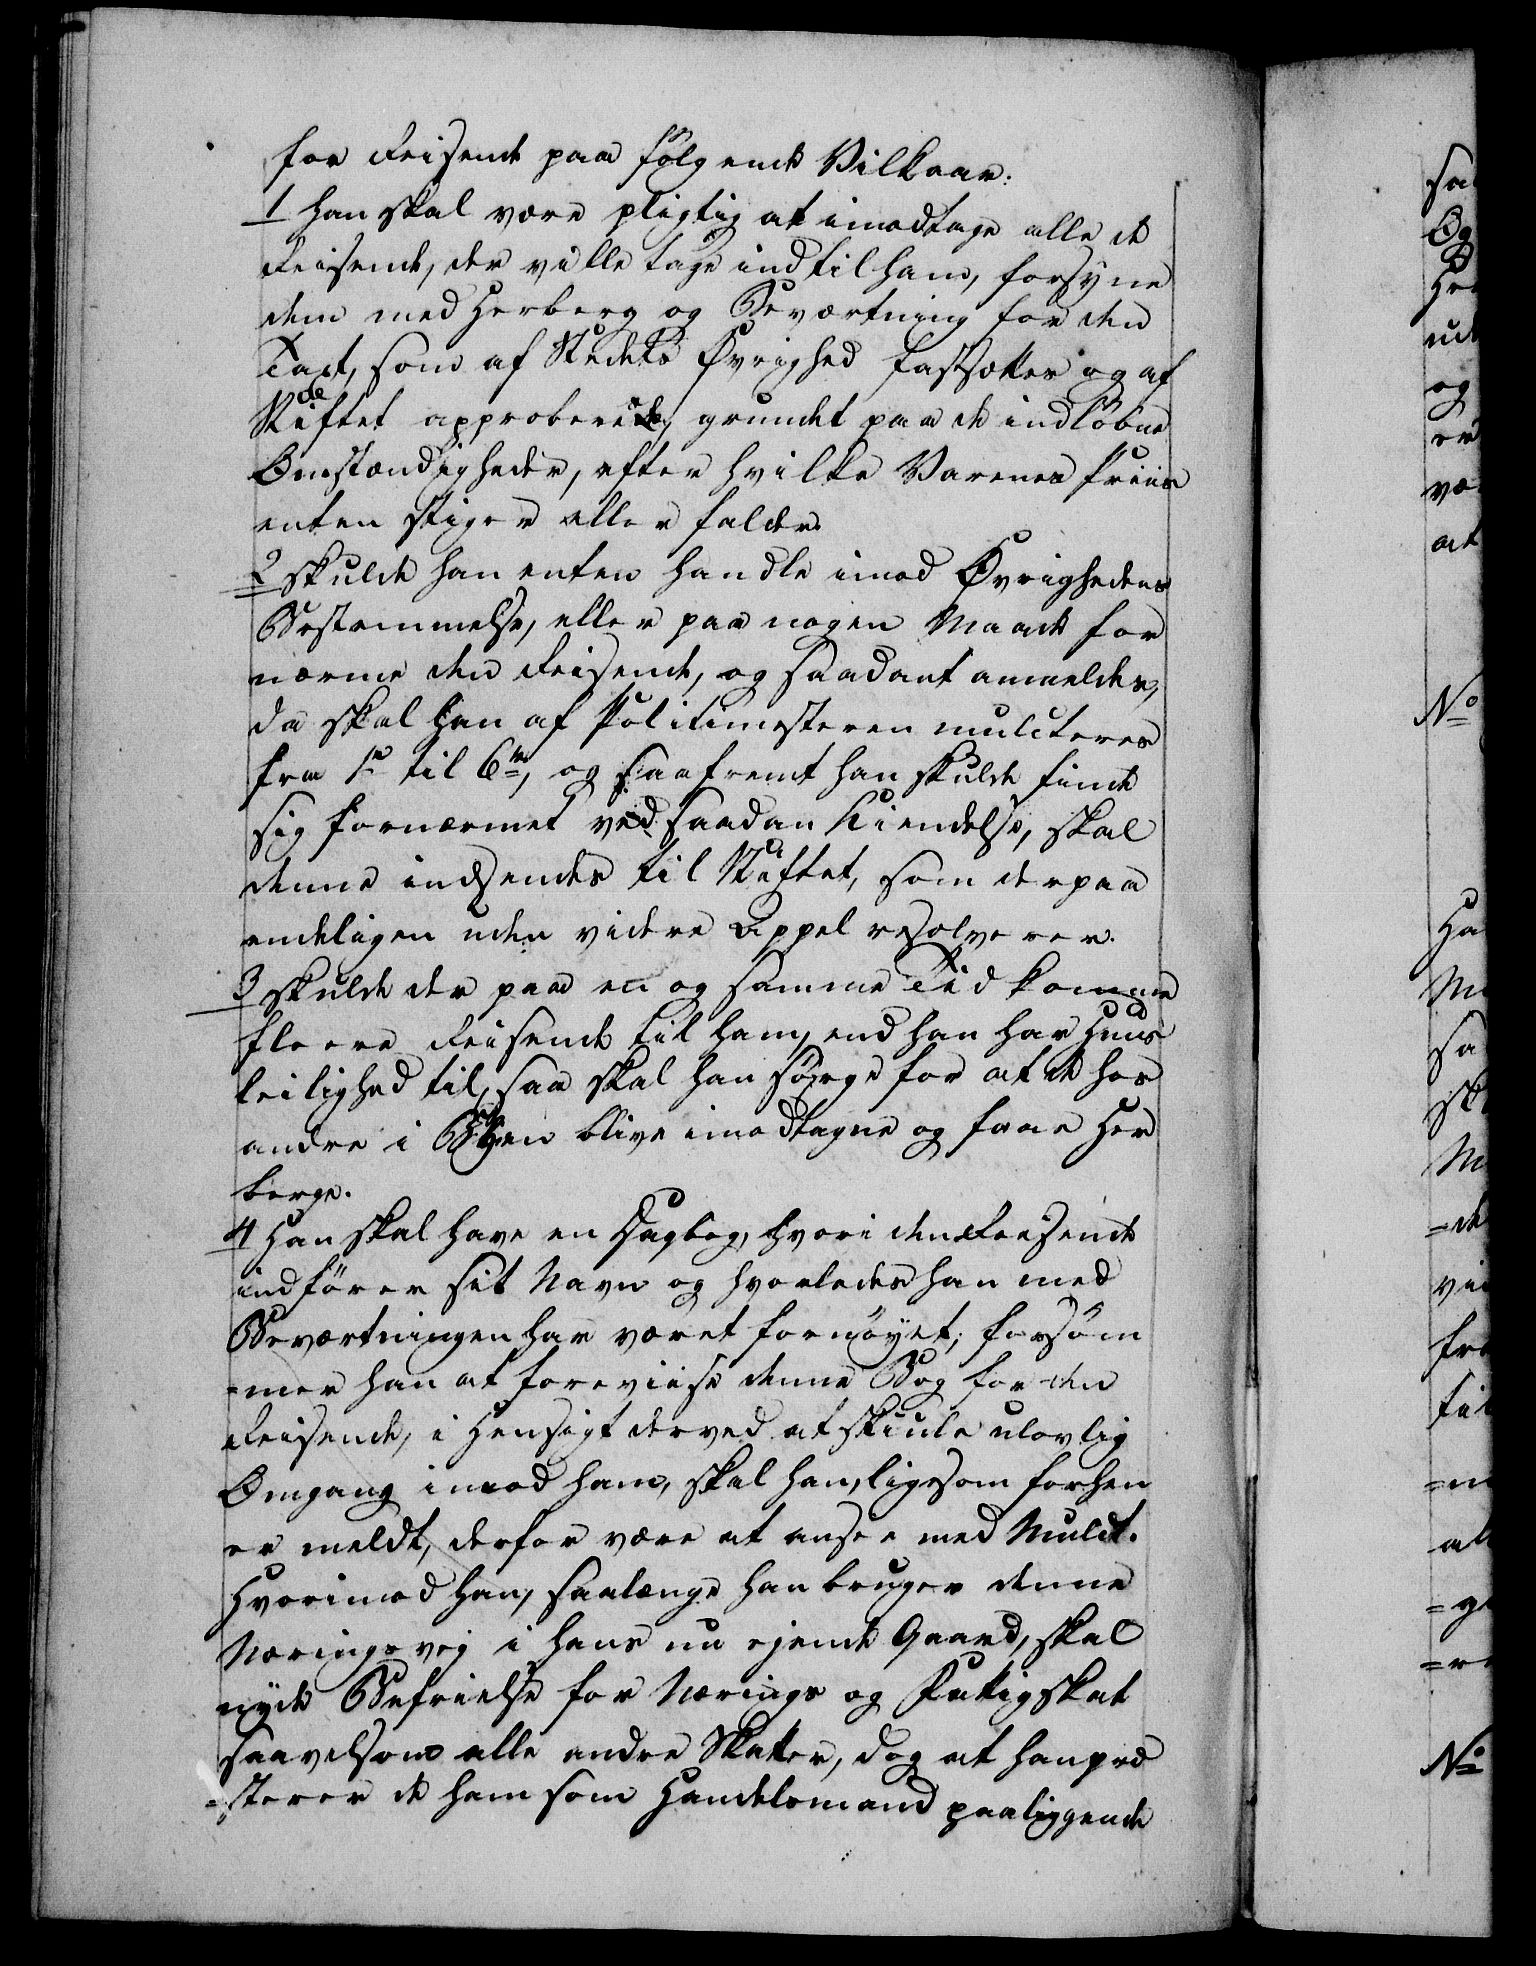 for Reisende paa følgende Vilkaar.
1 han skal være pligtig at imodtage alle de
Reisende, der ville tage ind til ham, forsyne
dem med Herberg og Beværtning for den
Taxt, som af Stedets Øvrighed fastsættes og af
Stiftet approberes, grundet paa de indløbne
Omstændigheder, efter hvilke Varenes Priis
enten stiger eller falder.
2 skulde han enten handle imod Øvrighedens
Bestemmelse, eller paa nogen Maade for
nærme den Reisende, og saadant anmeldes,
da skal han af Politimesteren mulcteres
fra 1 rd til 6 rd, og saafremt han skulde finde
sig fornærmet ved saadan Kiendelse, skal
denne indsendes til Stiftet, som derpaa
endeligen uden videre Appel resolverer.
3 skulde der paa en og samme Tid komme
fleere Reisende til ham, end han har Huus
leilighed til, saa skal han sørge for at de hos
andre i Byen blive imodtagne og faae Her
berge.
4 Han skal have en Dagbog, hvori den Reisende
indfører sit Navn og hvorledes han med
Beværtningen har været fornøyet; forsøm
=mer han at foreviise denne Bog for den
Reisende, i Hensigt derved at skiule ulovlig
Omgang imod ham, skal han, ligesom forhen
er meldt, derfor være at ansee med Mulct.
Hvorimod han, saalænge han bruger denne
Næringsvej i hans nu ejende Gaard, skal
nyde Befrielse for Nærings og Fattigskat
saavelsom alle andre Skatter, dog at han præ
=sterer de ham som Handelsmand paaliggende